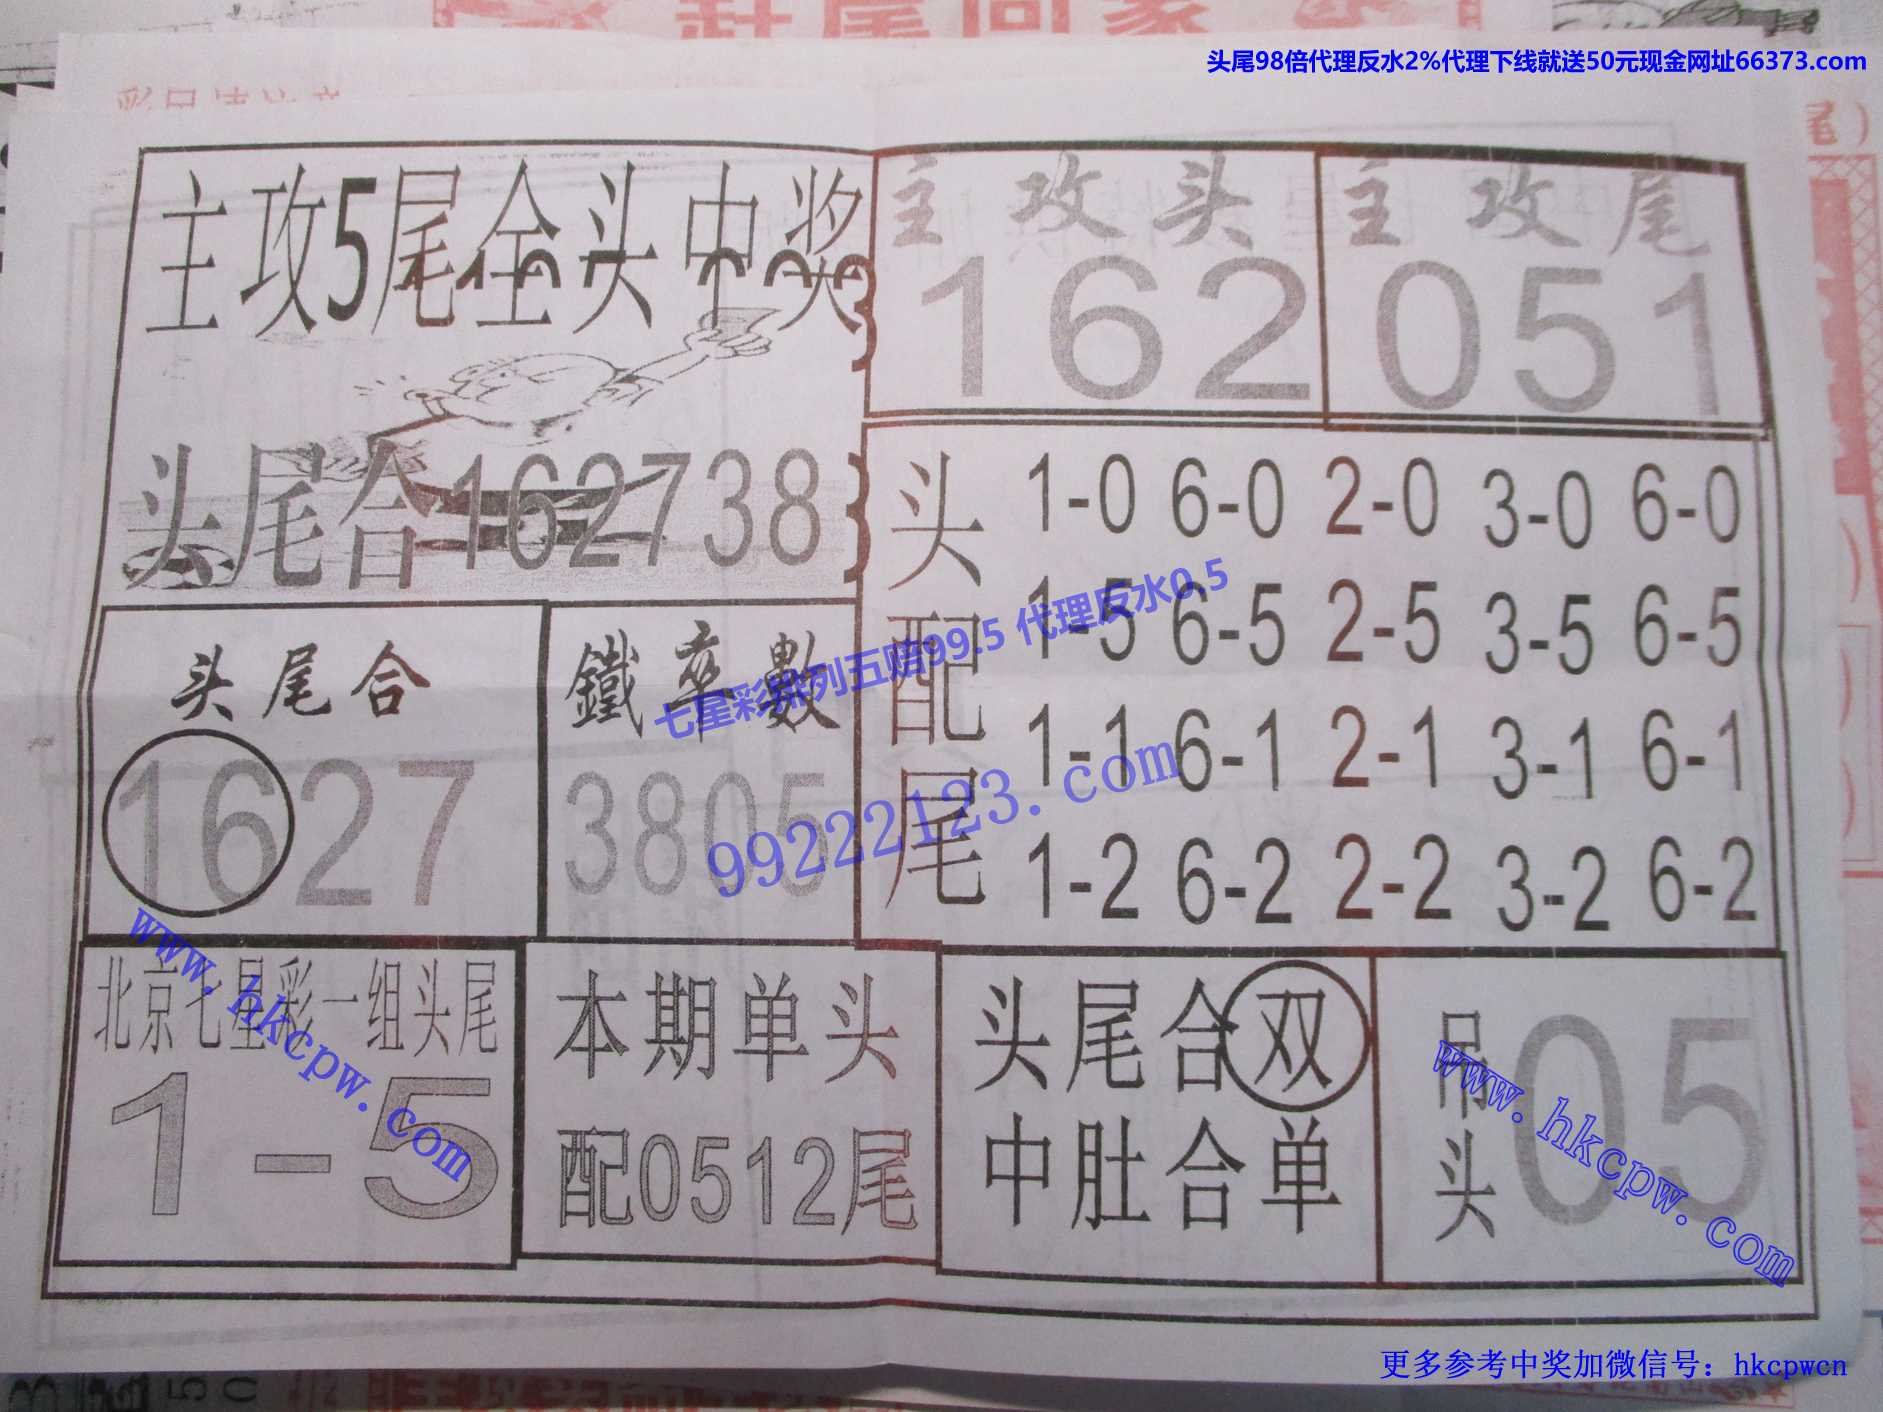 赶尾回家
头尾98倍代理反水2%代理下线就送50元现金网址66373.com
尾）
主攻5尾全头中奖
主攻头
162
主攻尾
051
头尾合162738
头配尾
1-0 6-0 2-0 3-0 6-0
1-5 6-5 2-5 3-5 6-5
1-1 6-1 2-1 3-1 6-1
1-2 6-2 2-2 3-2 6-2
头尾合
1627
鐵率數
3805
七星彩排列五赔99.5 代理反水0.5
99222123.com
北京七星彩一组头尾
1-5
www.hkcpw.com
本期单头
配0512尾
头尾合双
中肚合单
吊头
05
www.hkcpw.com
更多参考中奖加微信号：hkcpwcn